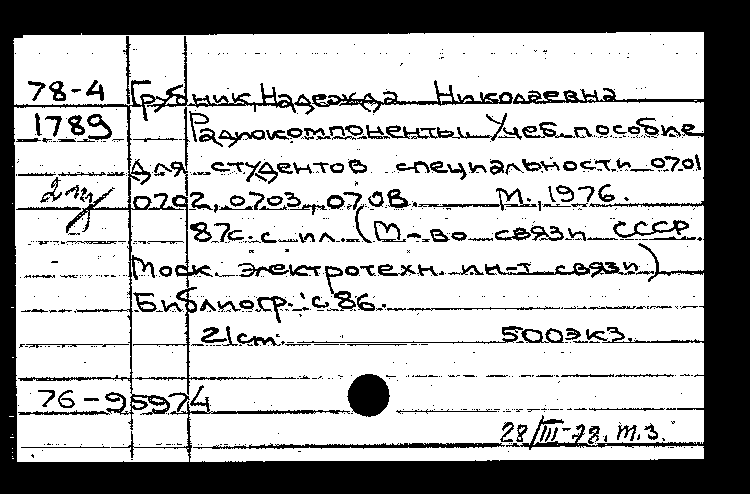 78-4 Грубник, Надежда Николаевна
1789 Радиокомпоненты. Учеб. пособие
для студентов специальности 0701
2 0702, 0703, 0708. М., 1976.
87с. с ил. (М-во связи СССР
Моск. электротехн. ин-т связи)
Библиогр.: с 86.
21 cm. 500экз.
76-95974
28/III-78. т.з.